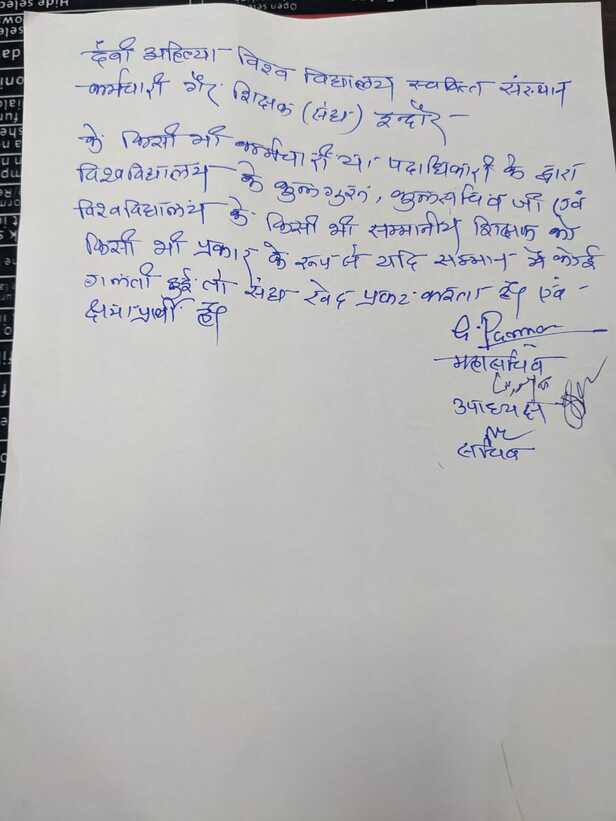 देवी अहिल्या विश्व विद्यालय स्ववित्त संस्थान
कर्मचारी गैर शिक्षक (संघ) इन्दौर
के किसी भी कर्मचारी या पदाधिकारी के द्वारा
विश्वविद्यालय के कुलगुरू, कुलसचिव जी एवं
विश्वविद्यालय के किसी भी सम्मानीय शिक्षक को
किसी भी प्रकार के रूप से यदि सम्मान में कोई
गलती हुई तो संघ खेद प्रकट करता है एवं -
क्षमाप्रार्थी है
महासचिव
उपाध्यक्ष
सचिव